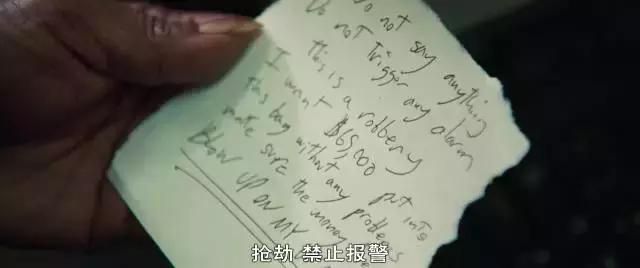 Do not say anything
Do not Trigger any alarm
this is a robbery
I want $65,000 put into
this bag without any problems
make sure the money
Blow UP ON MY
抢劫 禁止报警